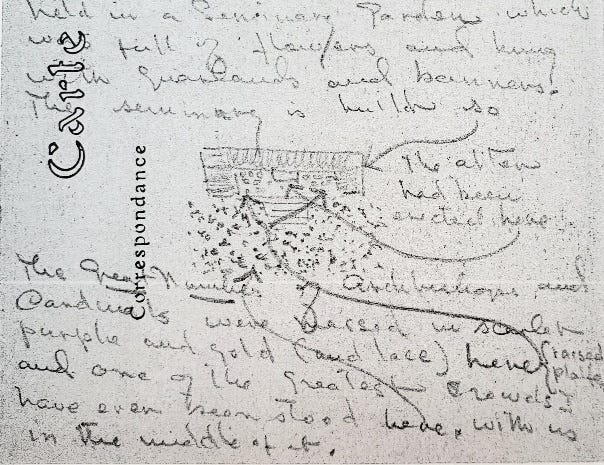 held in a Seminary Garden which
was full of flowers and hung
with Guarlands and banners.
The seminary is builded so
The altar
had been
erected here.
The Great Number of Archbishops and
Cardinals were massed in scarlet
purple and gold (and lace) here (raised
and one of the greatest crowds I
have even seen stood here, with us
in the middle of it.
Carte
Correspondance